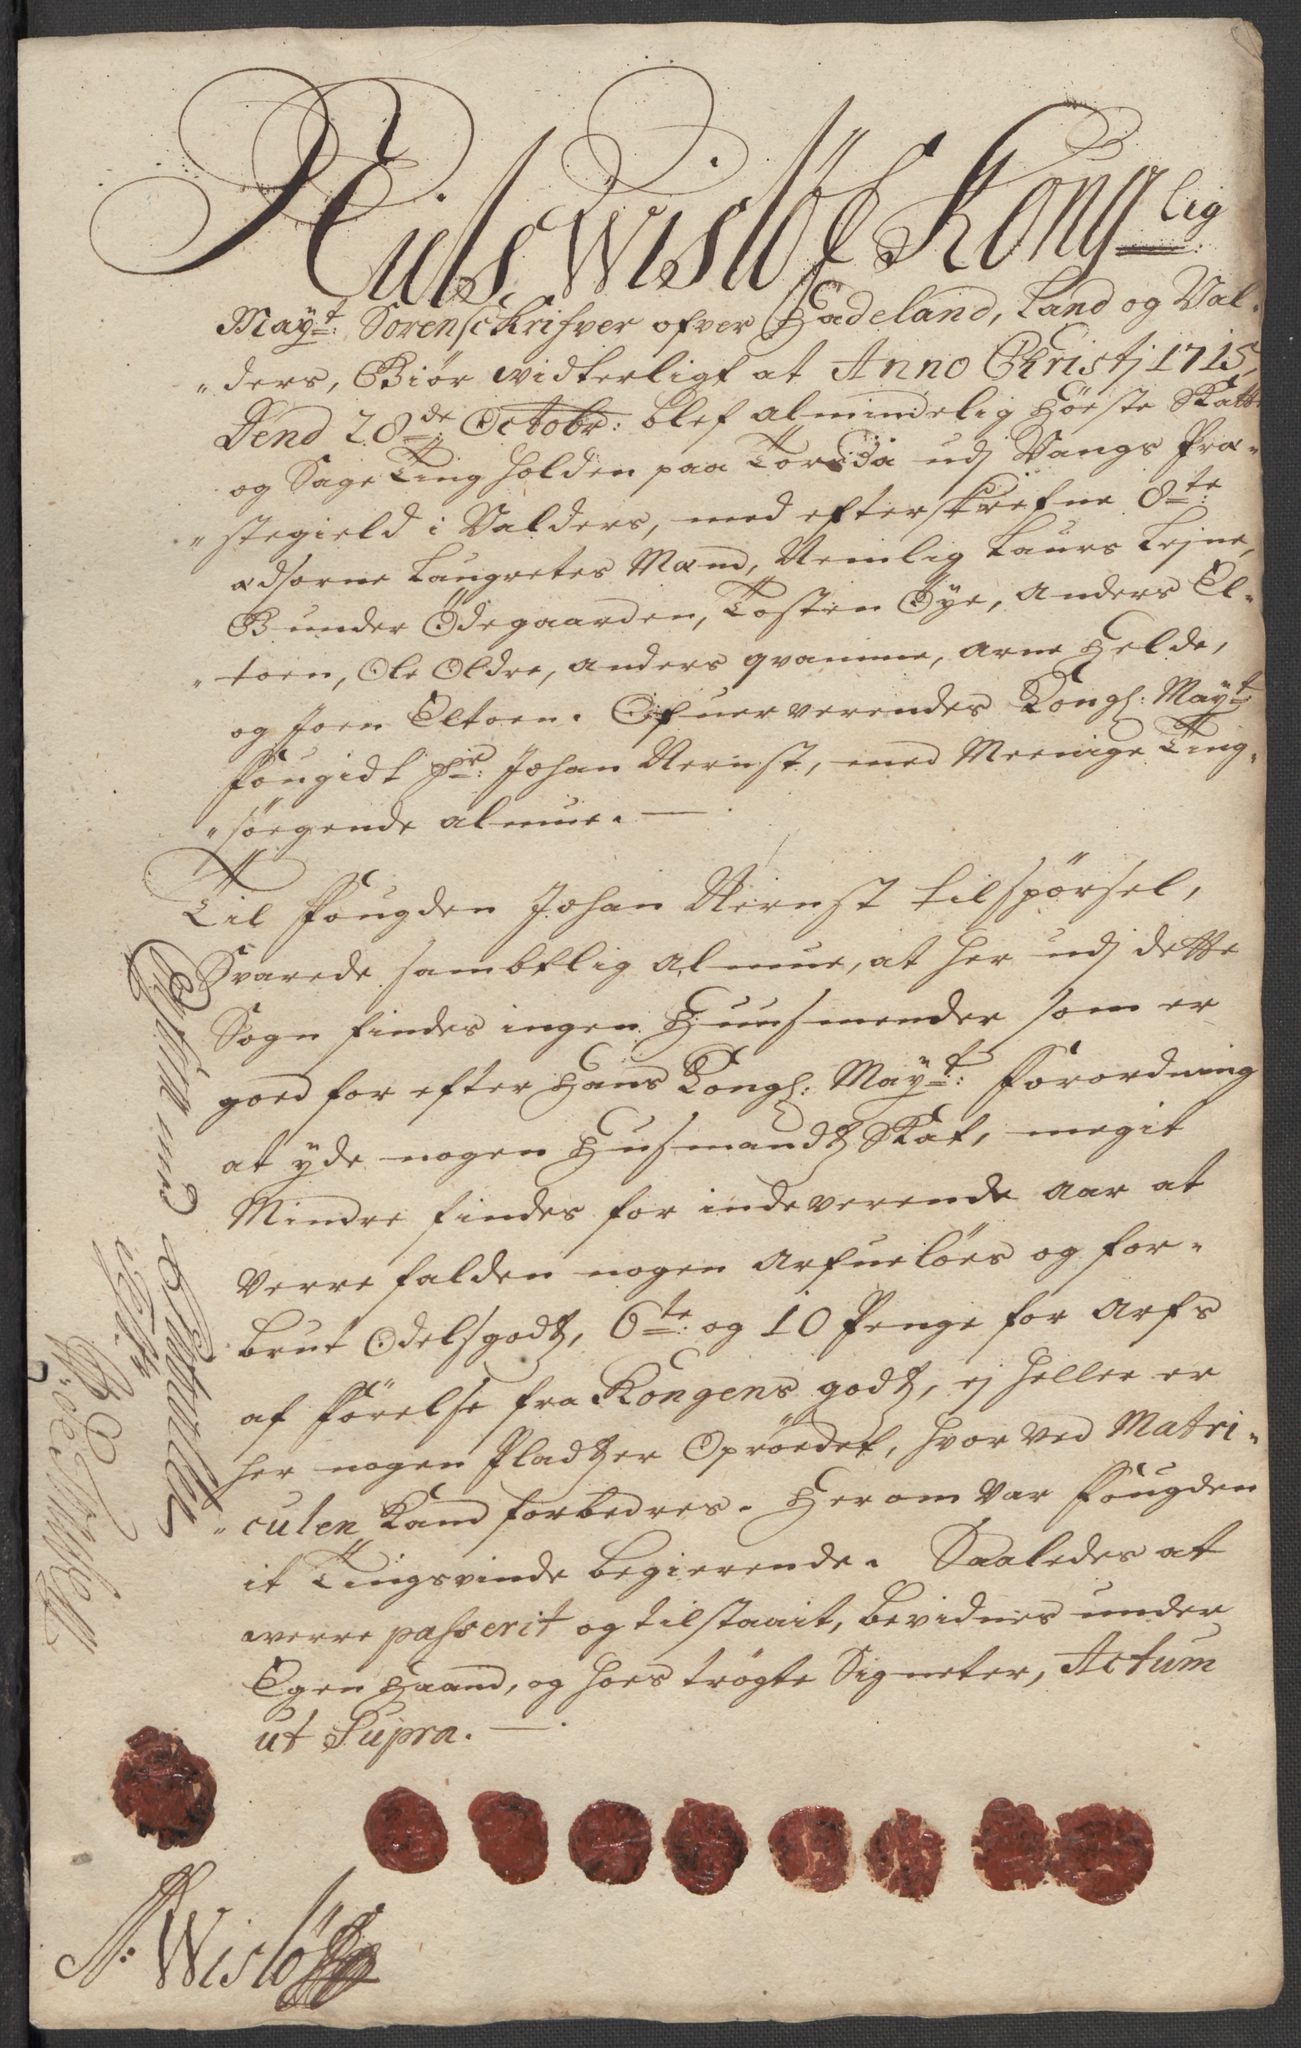 Niels Wislöf Konglig
May.t: Sorenschrifver ofver Hadeland, Land og Val-
"ders, Giör vidterligt at Anno Christj 1715,
Dend 28de Octobr: blef almindelig Höeste Skatte
og Sage Ting holden paa Torsda udj Vangs Præ-
"stegield i Valders, med efterskrefne 8te:
ædsorne Laugrettes Mænd, Nemlig Laurs Lejne,
Gunder Ödegaarden, Tosten Öye, Anders El-
"toen, Ole Oldre, Anders qvamme, Arne Helde,
og Joen Eltoen. Ofuerverendes Kongl: May.t
Fougidt Hr: Johan Nernst, med Meenige Ting-
"söegende almue. —
Til Fougden Johan Nernst tilspörsel,
Svarede sambtlig Almue, at her udj dette
Sogn findes ingen Huusmender som er
goed for efter Hans Kongl: May.t: Forordning
at yde nogen Husmandtz Skat, megit
Mindre findes for indeverende Aar at
verre falden nogen Arfueløes og for-
brut Odelsgodtz, 6te: og 10 Penge for Arfs
af Förelse fra Kongens godtz, ej heller er
her nogen Pladtzer Opröedet, hvor ved Matri-
"culen Kand forbedres. Herom var Fougden
it Tingsvinde begierende. Saaledes at
werre passerit og tilstaait, bevidnes under
Egen Haand, og hoes trögte Signeter, Actum
ut Supra. —
N: Wislöf